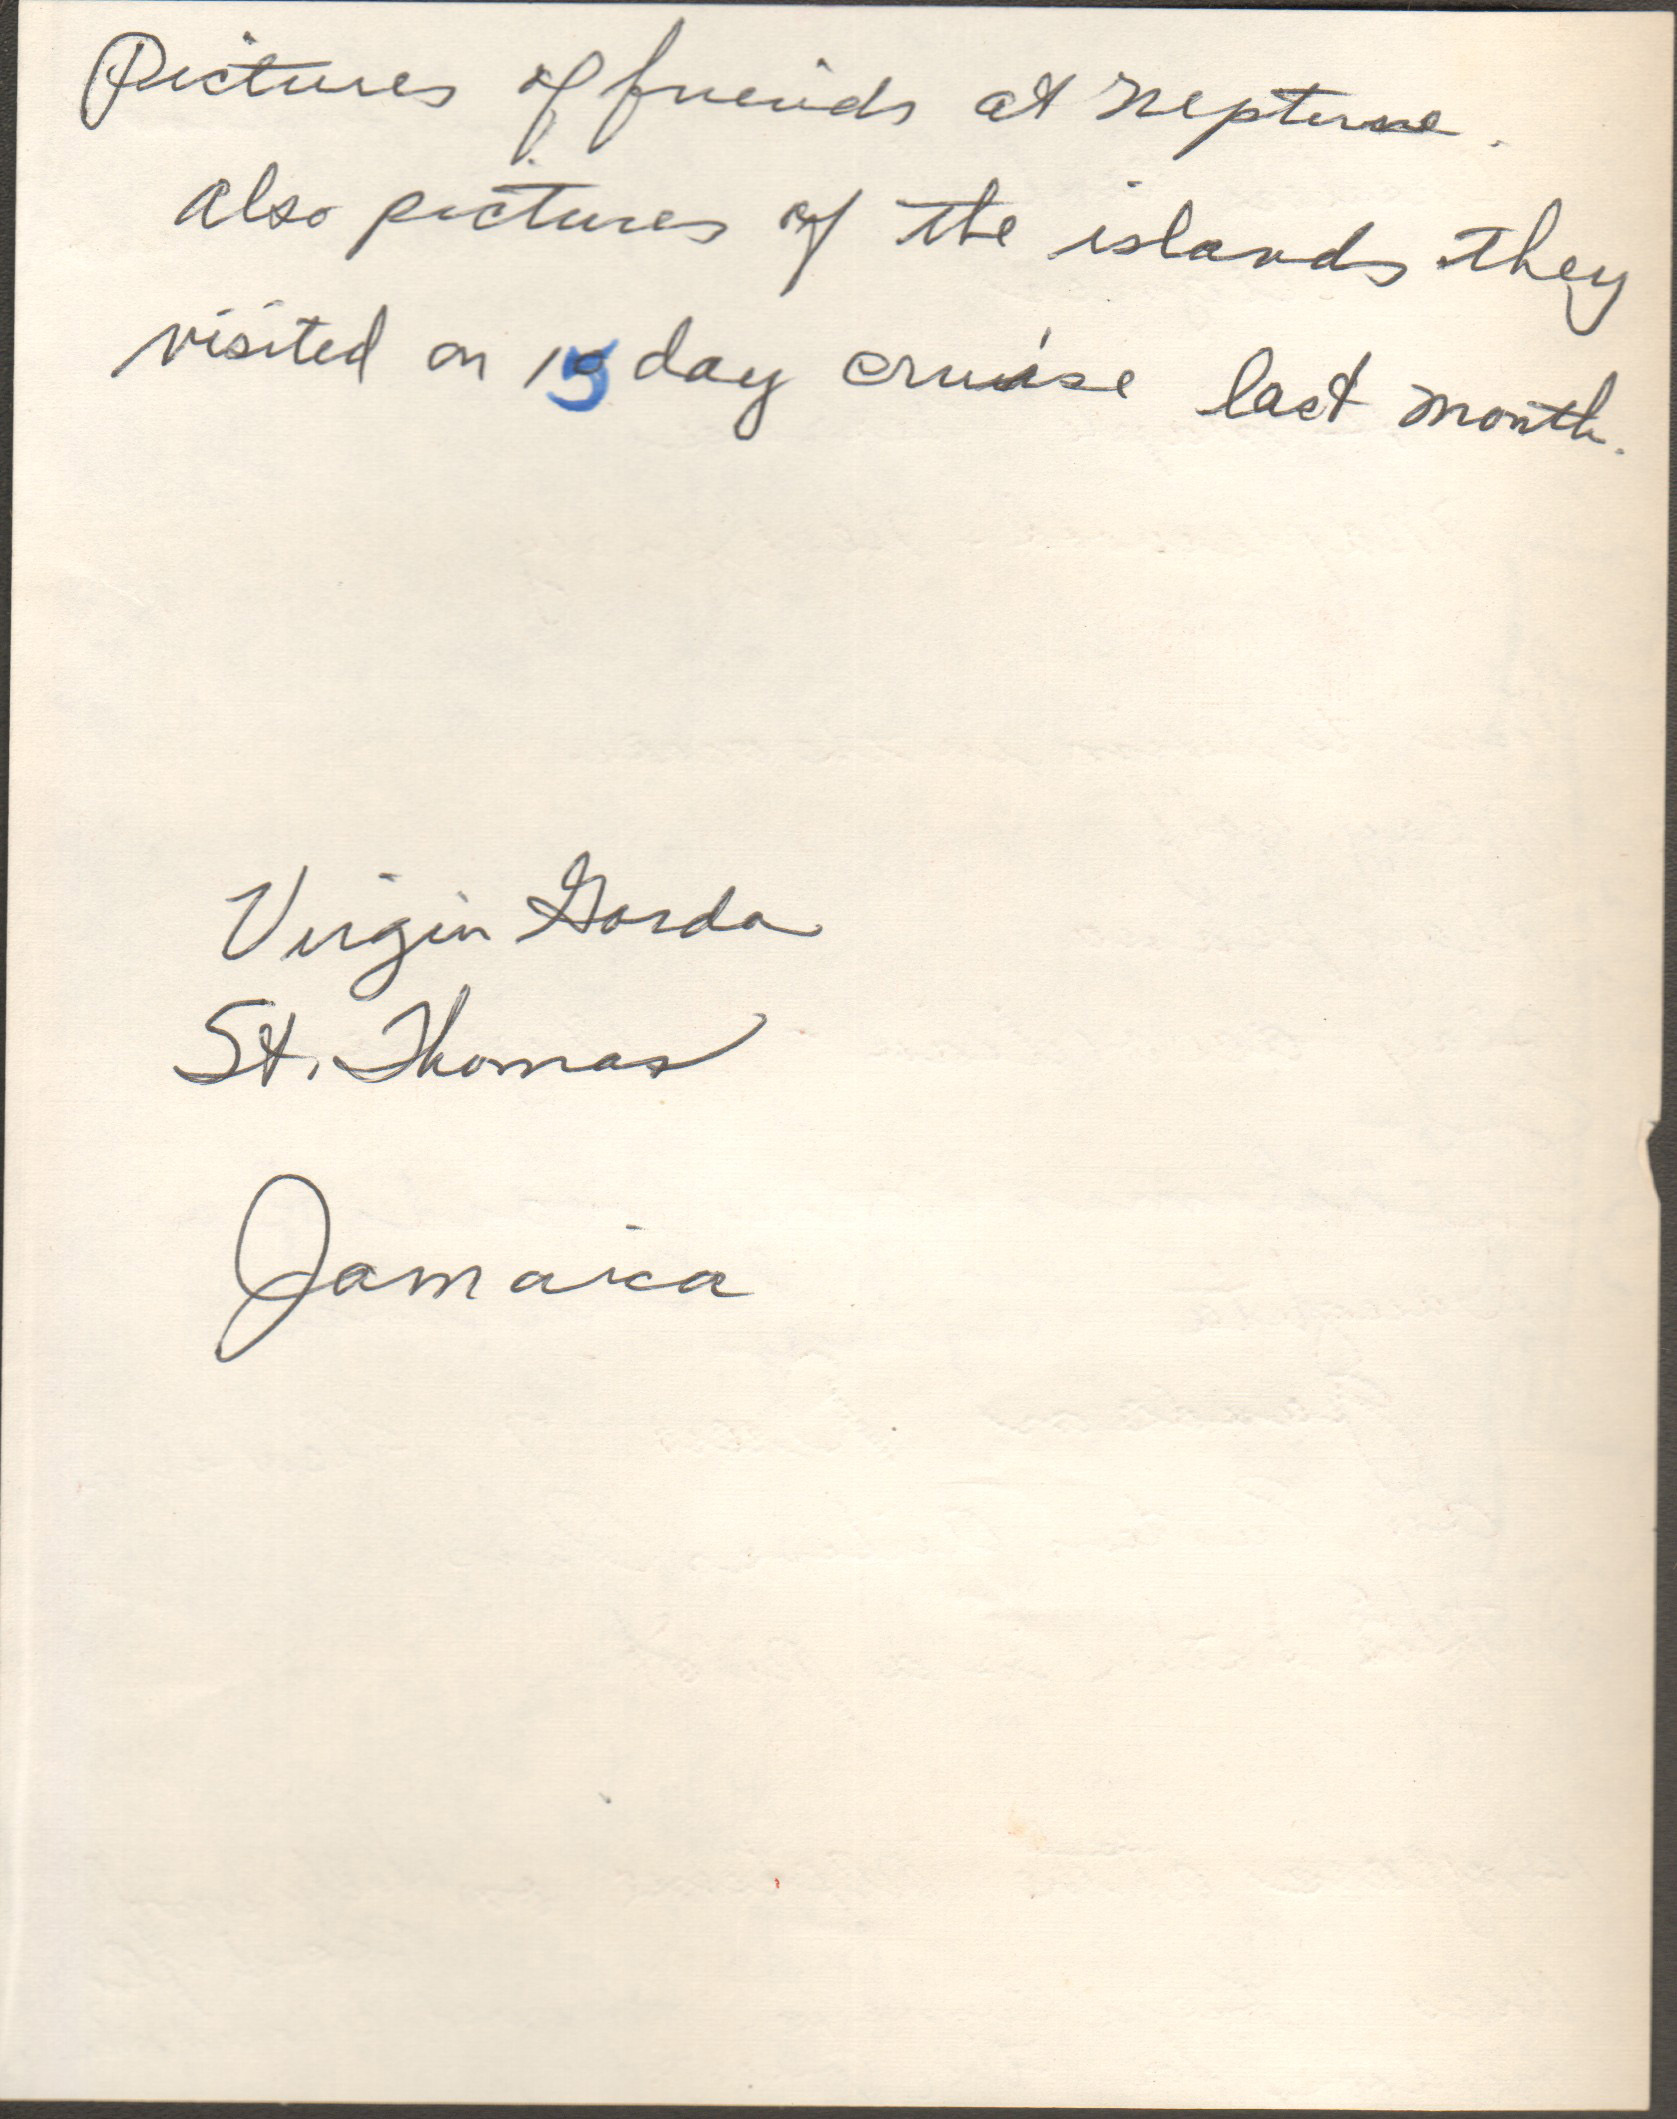 Pictures of friends at Neptune.
Also pictures of the islands they
visited on 15 day cruise last month.
Virgin Gorda
St. Thomas
Jamaica